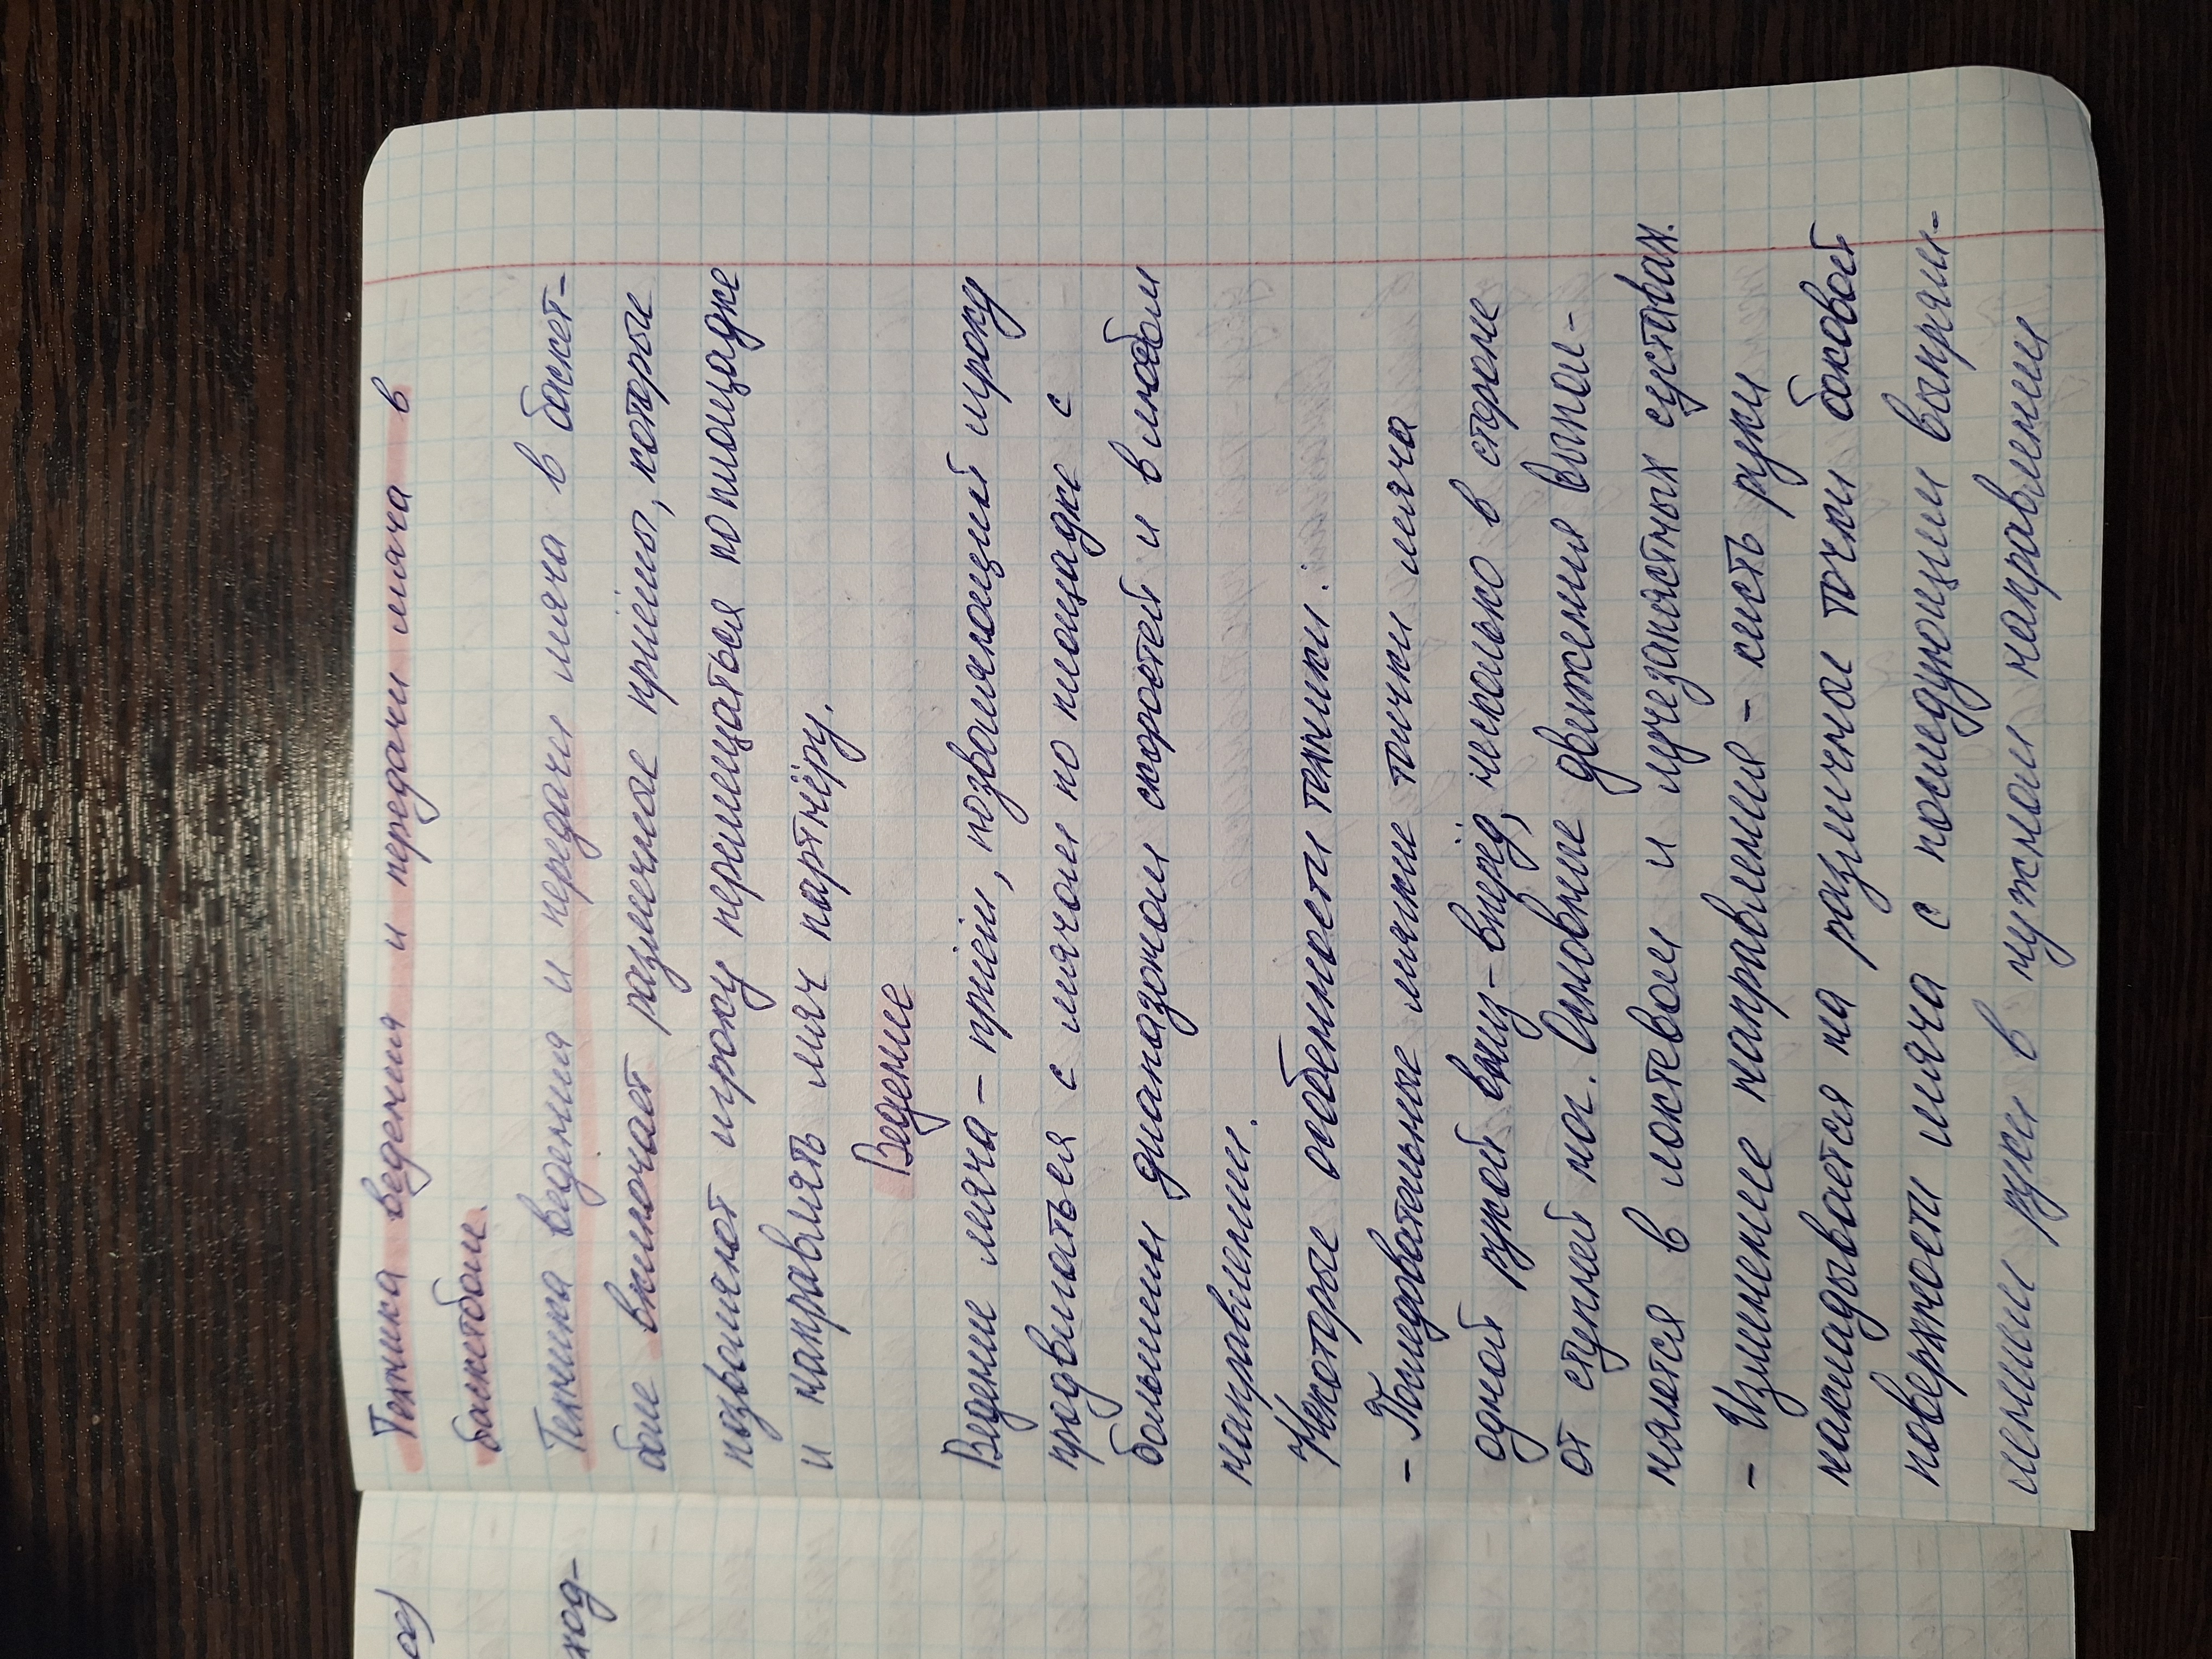 Техника ведения и передачи мяча в
баскетболе.
Техника ведения и передачи мяча в баскет-
боле включает различные приёмы, которые
позволяют игроку перемещаться по площадке
и направлять мяч партнёру.
Ведение
Ведение мяча – приём, позволяющий игроку
продвигаться с мячом по площадке с
большим диапазоном скоростей и в любом
направлении.
Некоторые особенности техники:
- Последовательные мягкие толчки мяча
одной рукой вниз-вперёд, несколько в стороне
от ступней ног. Основные движения выпол-
няются в локтевом и лучезапястных суставах.
- Изменение направления – кисть руки
накладывается на различные точки боковой
поверхности мяча с последующим выпрям-
лением руки в нужном направлении
ход-